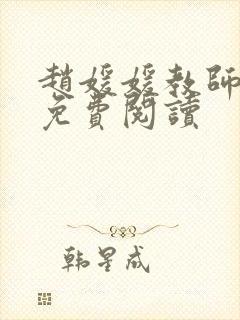 趙媛媛教師
免費閱讀
韩星成